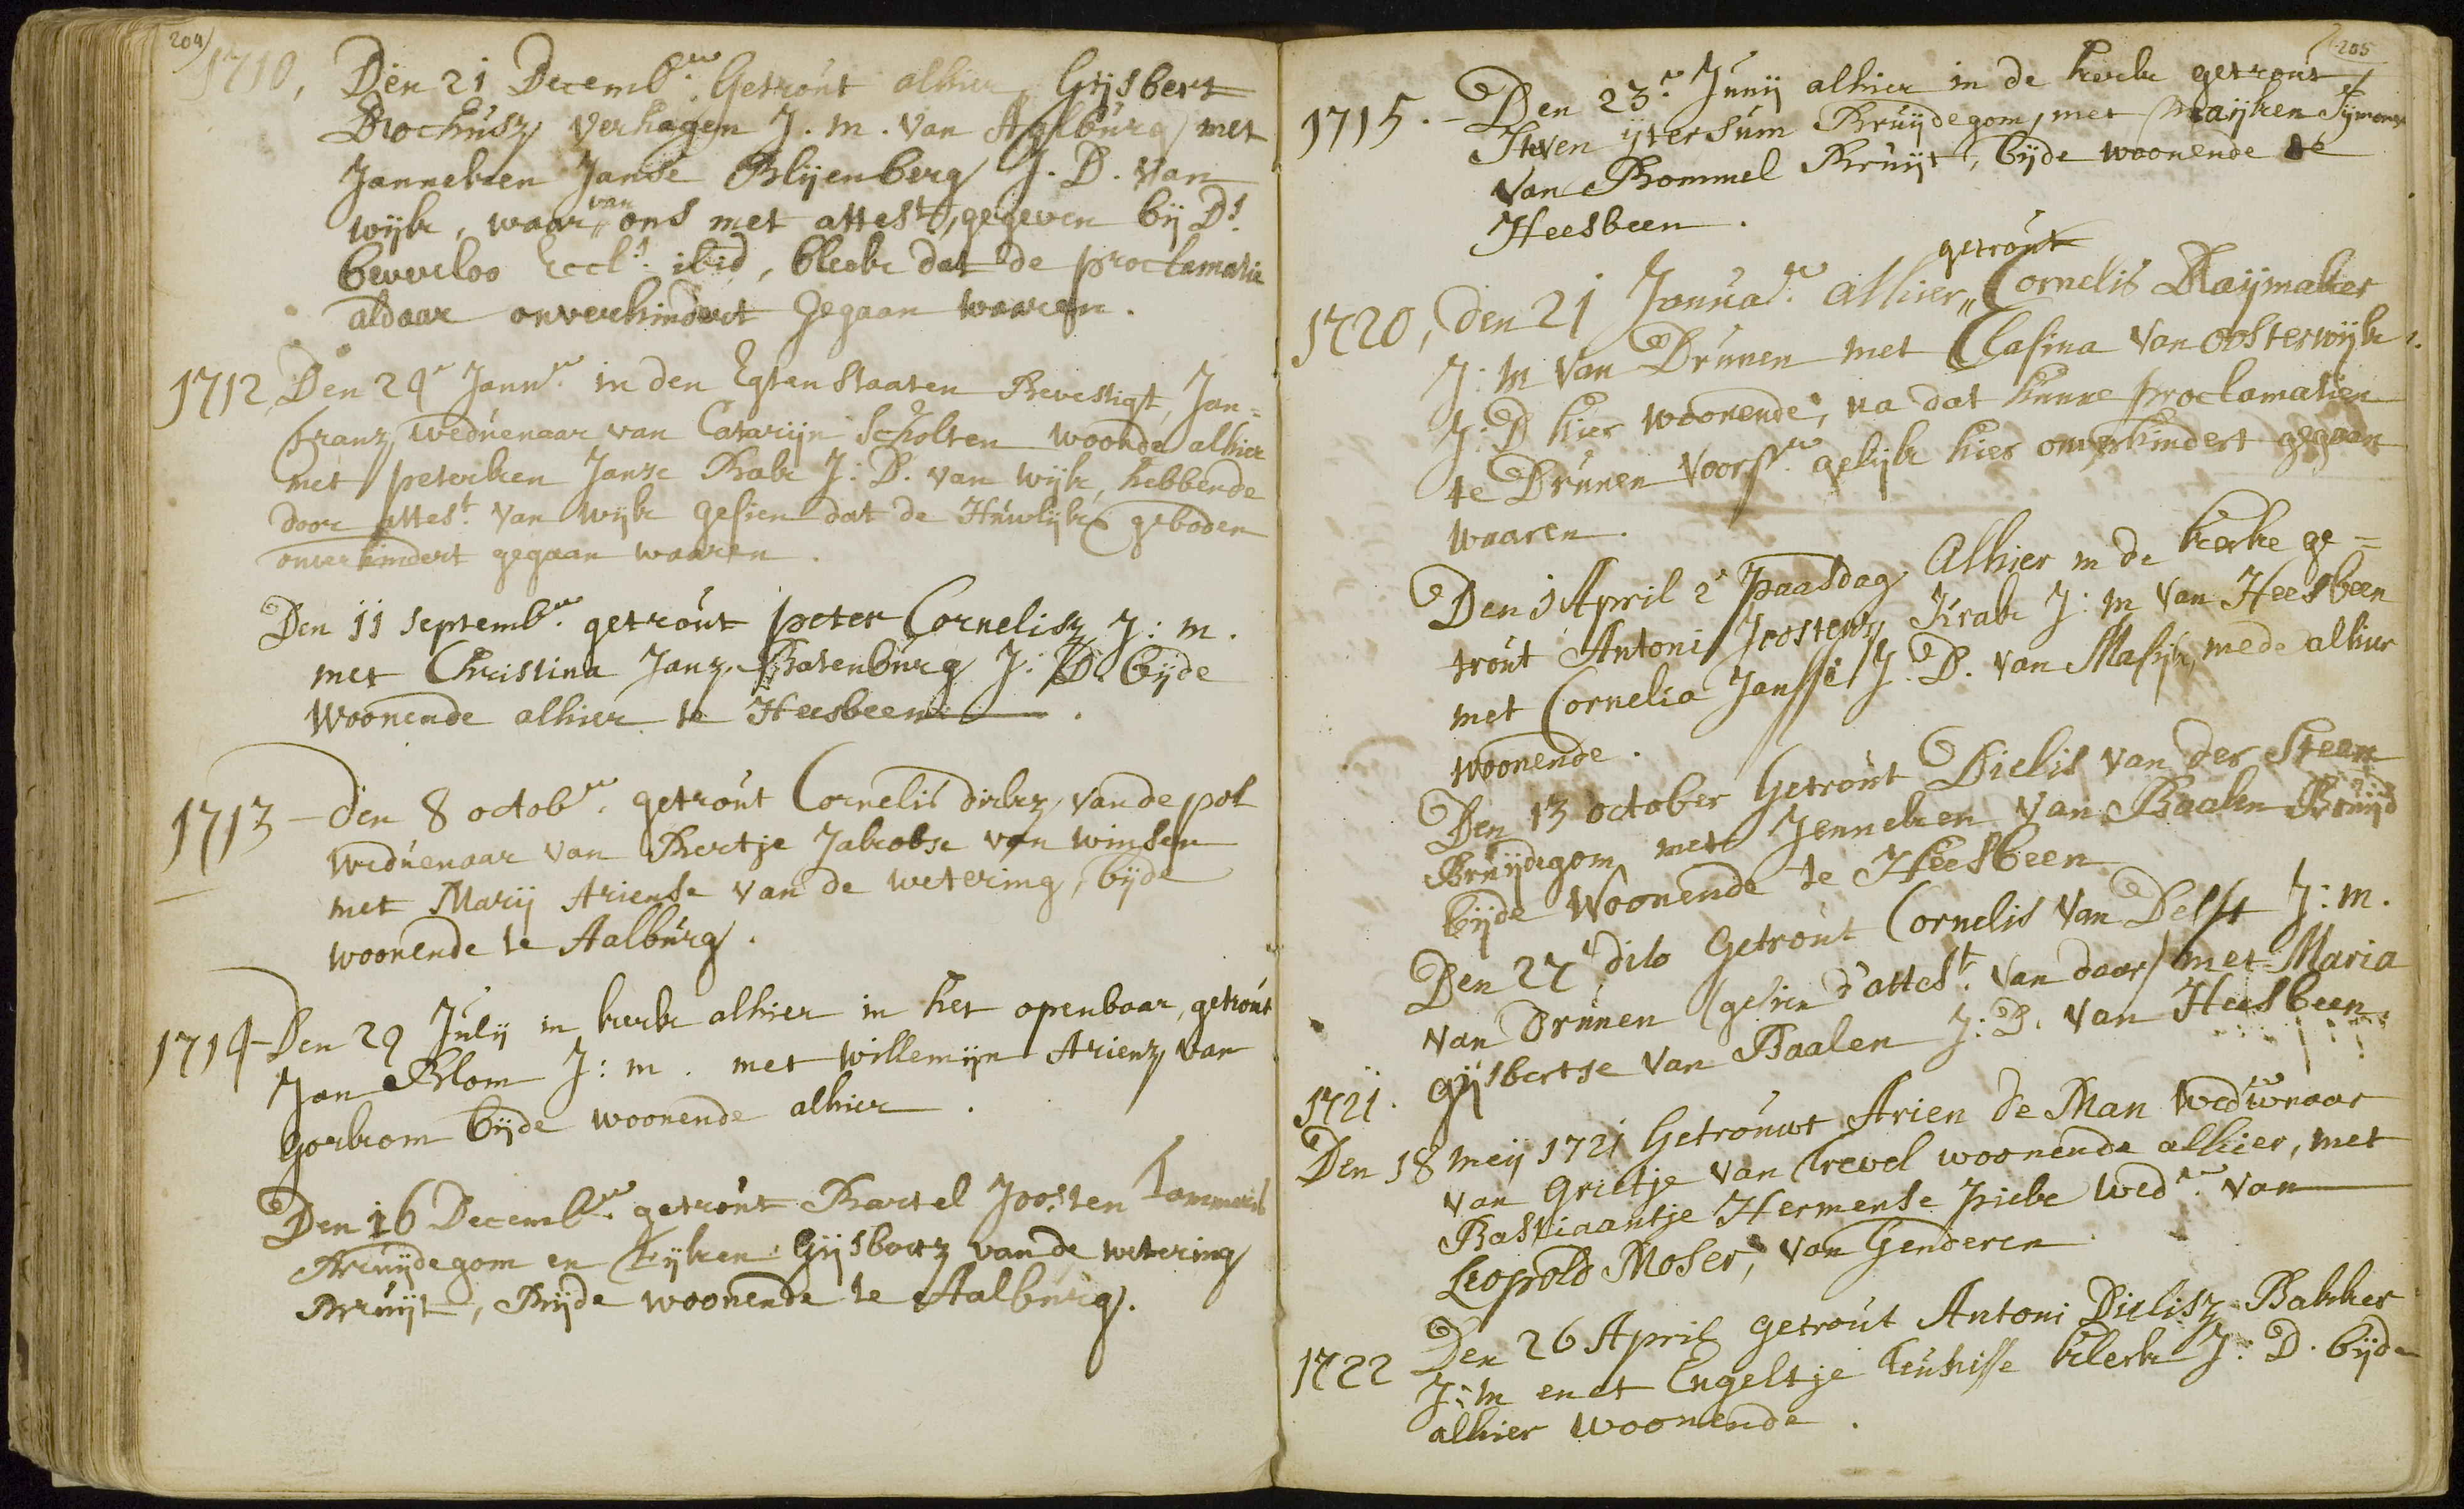 204
1710, Den 21 Decemb.r Getrout alhier Gijsbert
Rochusz Verhagen J. m. van Aalburg met
Janneken Janse Blijenberg J. D. van
wijk, waar van ons met attest, gegeven bij Ds.
beverloo Eccls. ibid, bleek dat de proclamatie
aldaar onverhindert gegaan waaren.
1712 Den 24e Janur. in den Egten Staaten Bevestigt, Jan=
franz, weduenaar van Catarijn Scholten woonde alhier
met peterken Janse Bak J: D. van wijk, hebbende
door attest. van wijk gesien dat de Huwlijk geboden
onverhindert gegaan waaren.
Den 11 septembr. getrout peter Cornelisz J: m.
met Christina Janz. Batenburg J: D. bijde
woonende alhier te Heesbeen.
1713 - Den 8 octobr. getrout Cornelis dirkz van de pol
weduenaar van Bertje Jakobse van winsen
met Marij Ariense van de wetering, bijde
woonende te Aalburg.
1714 - Den 29 Julij in kerk alhier in het openbaar, getrout
Jan Blom J: m. met willemijn Arienz van
Gorkom bijde woonende alhier.
Den 16 Decembr. getrout Bartel Joosten Tammeris
Bruijdegom en Eijken Gijsbertz van de wetering
Bruijt, Bijde woonende te Aalburg.
205
1715. - Den 23e Junij alhier in de kerk getrout
Iwen ijtersum Bruijdegom, met Maijken Sijmons
van Bommel Bruijt, bijde woonende te
Heesbeen.
getrout
1720, den 21 Januar. alhier Cornelis Raijmaker
J: m van Drunen met Clasina van oosterwijk
J: D hier woonende, na dat hunne proclamatien
te Drunen voors. gelijk hier onverhindert gegaan
waaren.
Den 1 April 2e paasdag Alhier in de kerke ge=
trout Antoni Joostenz Krak J: m van Heesbeen
met Cornelia Jansse J: D. van Masijk, mede alhier
woonende.
Den 13 october Getrout Dielis van der Steen
Bruijdegom, met Jenneken van Baalen Bruijd
bijde Woonende te Heesbeen
Den 27 dito Getrout Cornelis van Delft J: m.
van Drunen (gesien d'attest. van daar) met Maria
gijsbertse van Baalen J: D. van Heesbeen.
1721.
Den 18 meij 1721 Getrouwt Arien de Man weduwnaar
van Grietje van Crevel woonende alhier, met
Bastiaantje Hermense piek wedr. van
Leopold Moser, van Genderen
1722 Den 26 April getrout Antoni Dielisz Bakker
J: m en et Engeltje Teunisse klerk J: D. bijde
alhier woonende.